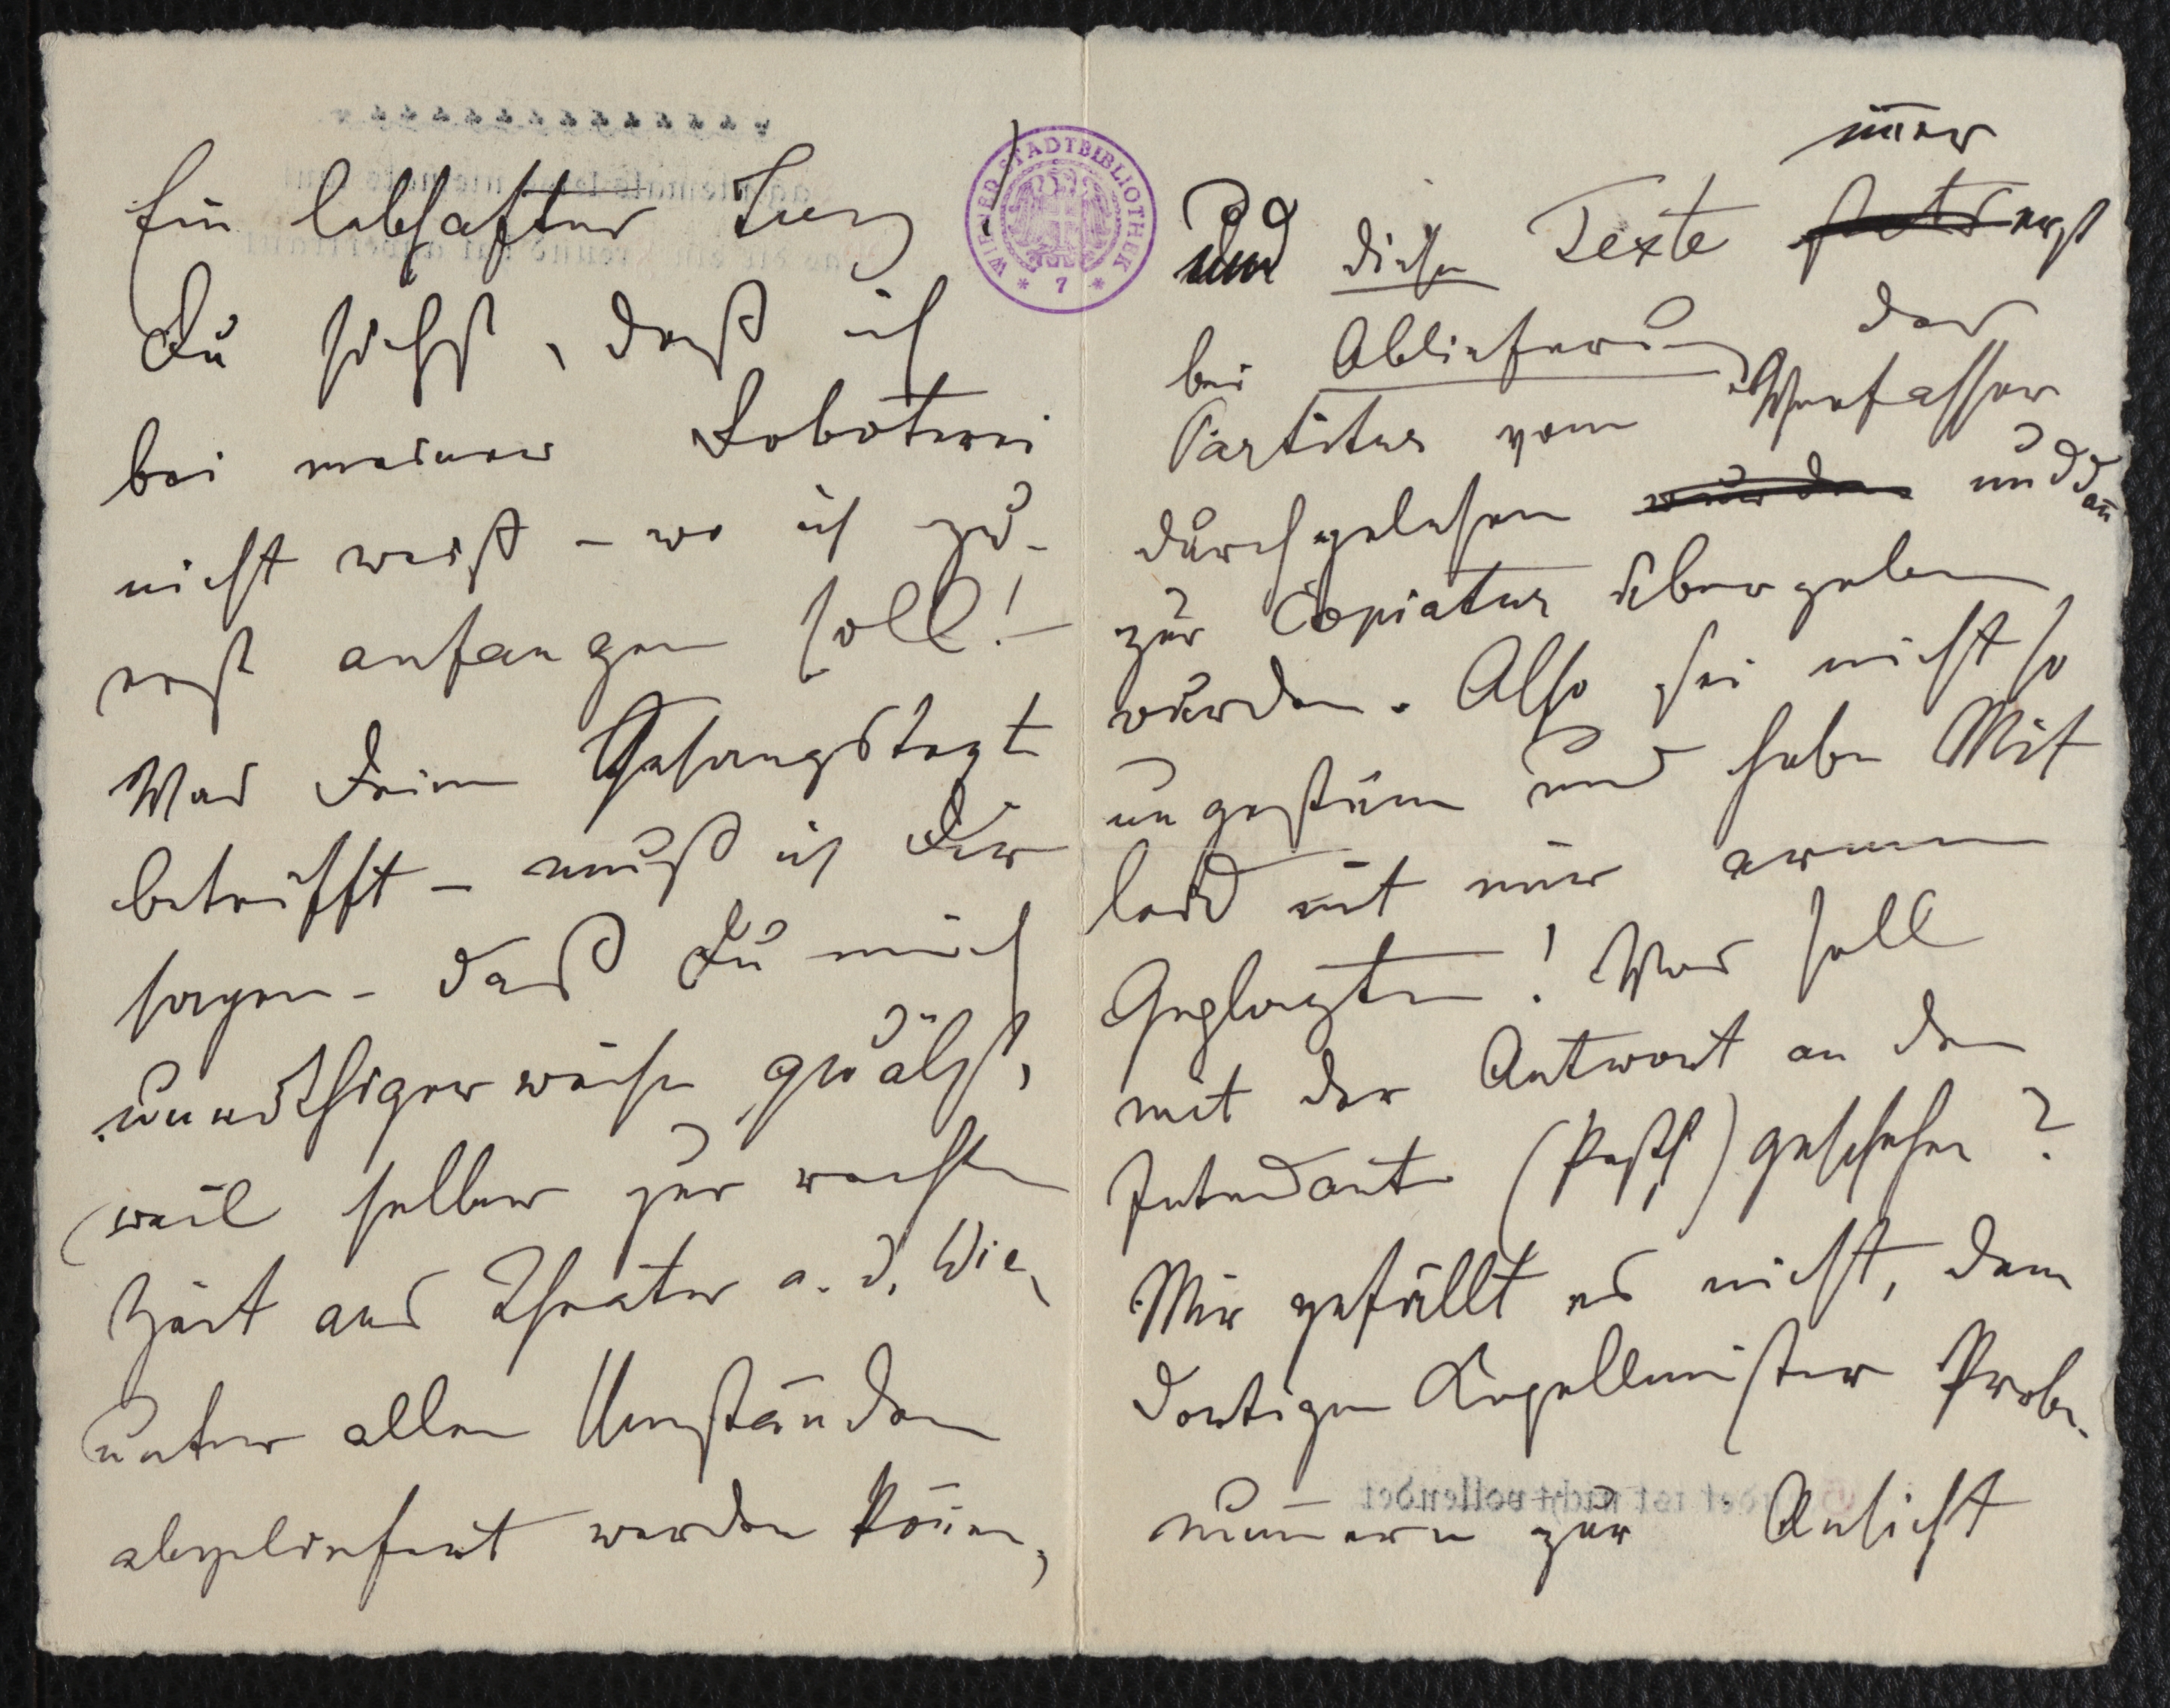 Ein lebhafter Zug
Du siehst, daß ich
bei meiner Roboterei
nicht weiß – wo ich zu-
erst anfangen soll! –
Was Deine Gesangstexte
betrifft – muß ich Dir
sagen – daß Du mich
unnöthigerweise quälst,
weil selber zur rechten
Zeit ans Theater a. d. Wien
unter allen Umständen
abgeliefert werden könen,
WIENER STADTBIBLIOTHEK
* 7 *
imer
und diese Texte stets erst
bei Ablieferung der
Partitur vom Verfasser
durchgelesen wurden und dan
zur Copiatur übergeben
wurden. Also sei nicht so
ungestüm und habe Mit
leid mit mir armen
Geplagten! Was soll
mit der Antwort an den
Intendant (Pesth) geschehen?
Mir gefällt es nicht, dem
dortigen Kapellmeister Probe-
numern zur Ansicht